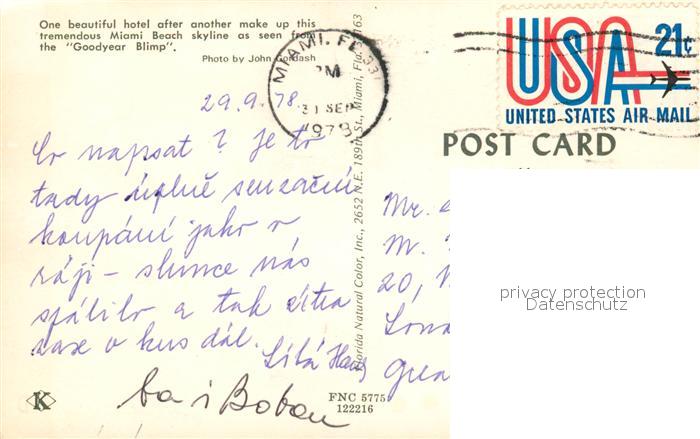 One beautiful hotel after another make up this
tremendous Miami Beach skyline as seen from
the "Goodyear Blimp".
Photo by John Gordash
MIAMI, FL 331
PM
SEP
1978
USA 21¢
UNITED STATES AIR MAIL
POST CARD
29.9.78
Co napsat? Je to
tady úplně senzační
koupání jako v
ráji - slunce nás
spálilo a tak zítra
zase o kus dál.
Líbá
i Boban
Florida Natural Color, Inc., 2652 N.E. 189th St., Miami, Fla. 33163
Mr.
M.
20,
Lon
Grea
privacy protection
Datenschutz
K
FNC 5775
122216